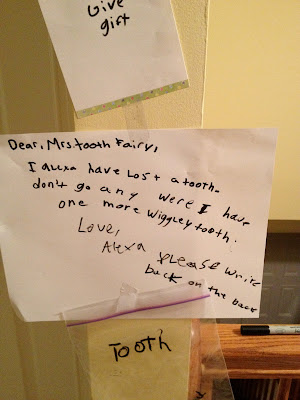 Give
gift
Dear, Mrs. tooth Fairy,
I Alexa have Lost a tooth.
don't go any were I have
one more wiggley tooth.
Love,
Alexa
please write
back on the back
Tooth